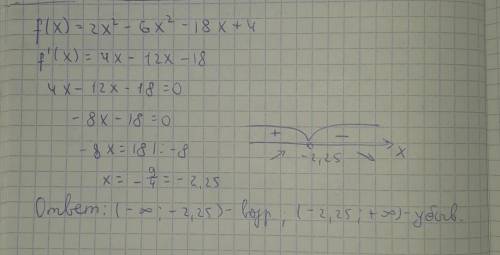 f(x) = 2x² - 6x² - 18x + 4
f'(x) = 4x - 12x - 18
4x - 12x - 18 = 0
- 8x - 18 = 0
- 8x = 18 | : -8
x = - 9/4 = - 2,25
+ -
-2,25 x
Ответ: (-∞; -2,25) - возр, (-2,25; +∞) - убыв.